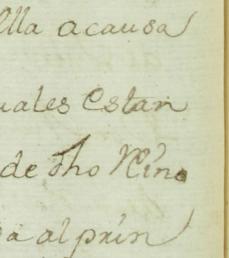 lla acausa
uales estan
de dho Nino
a al prin